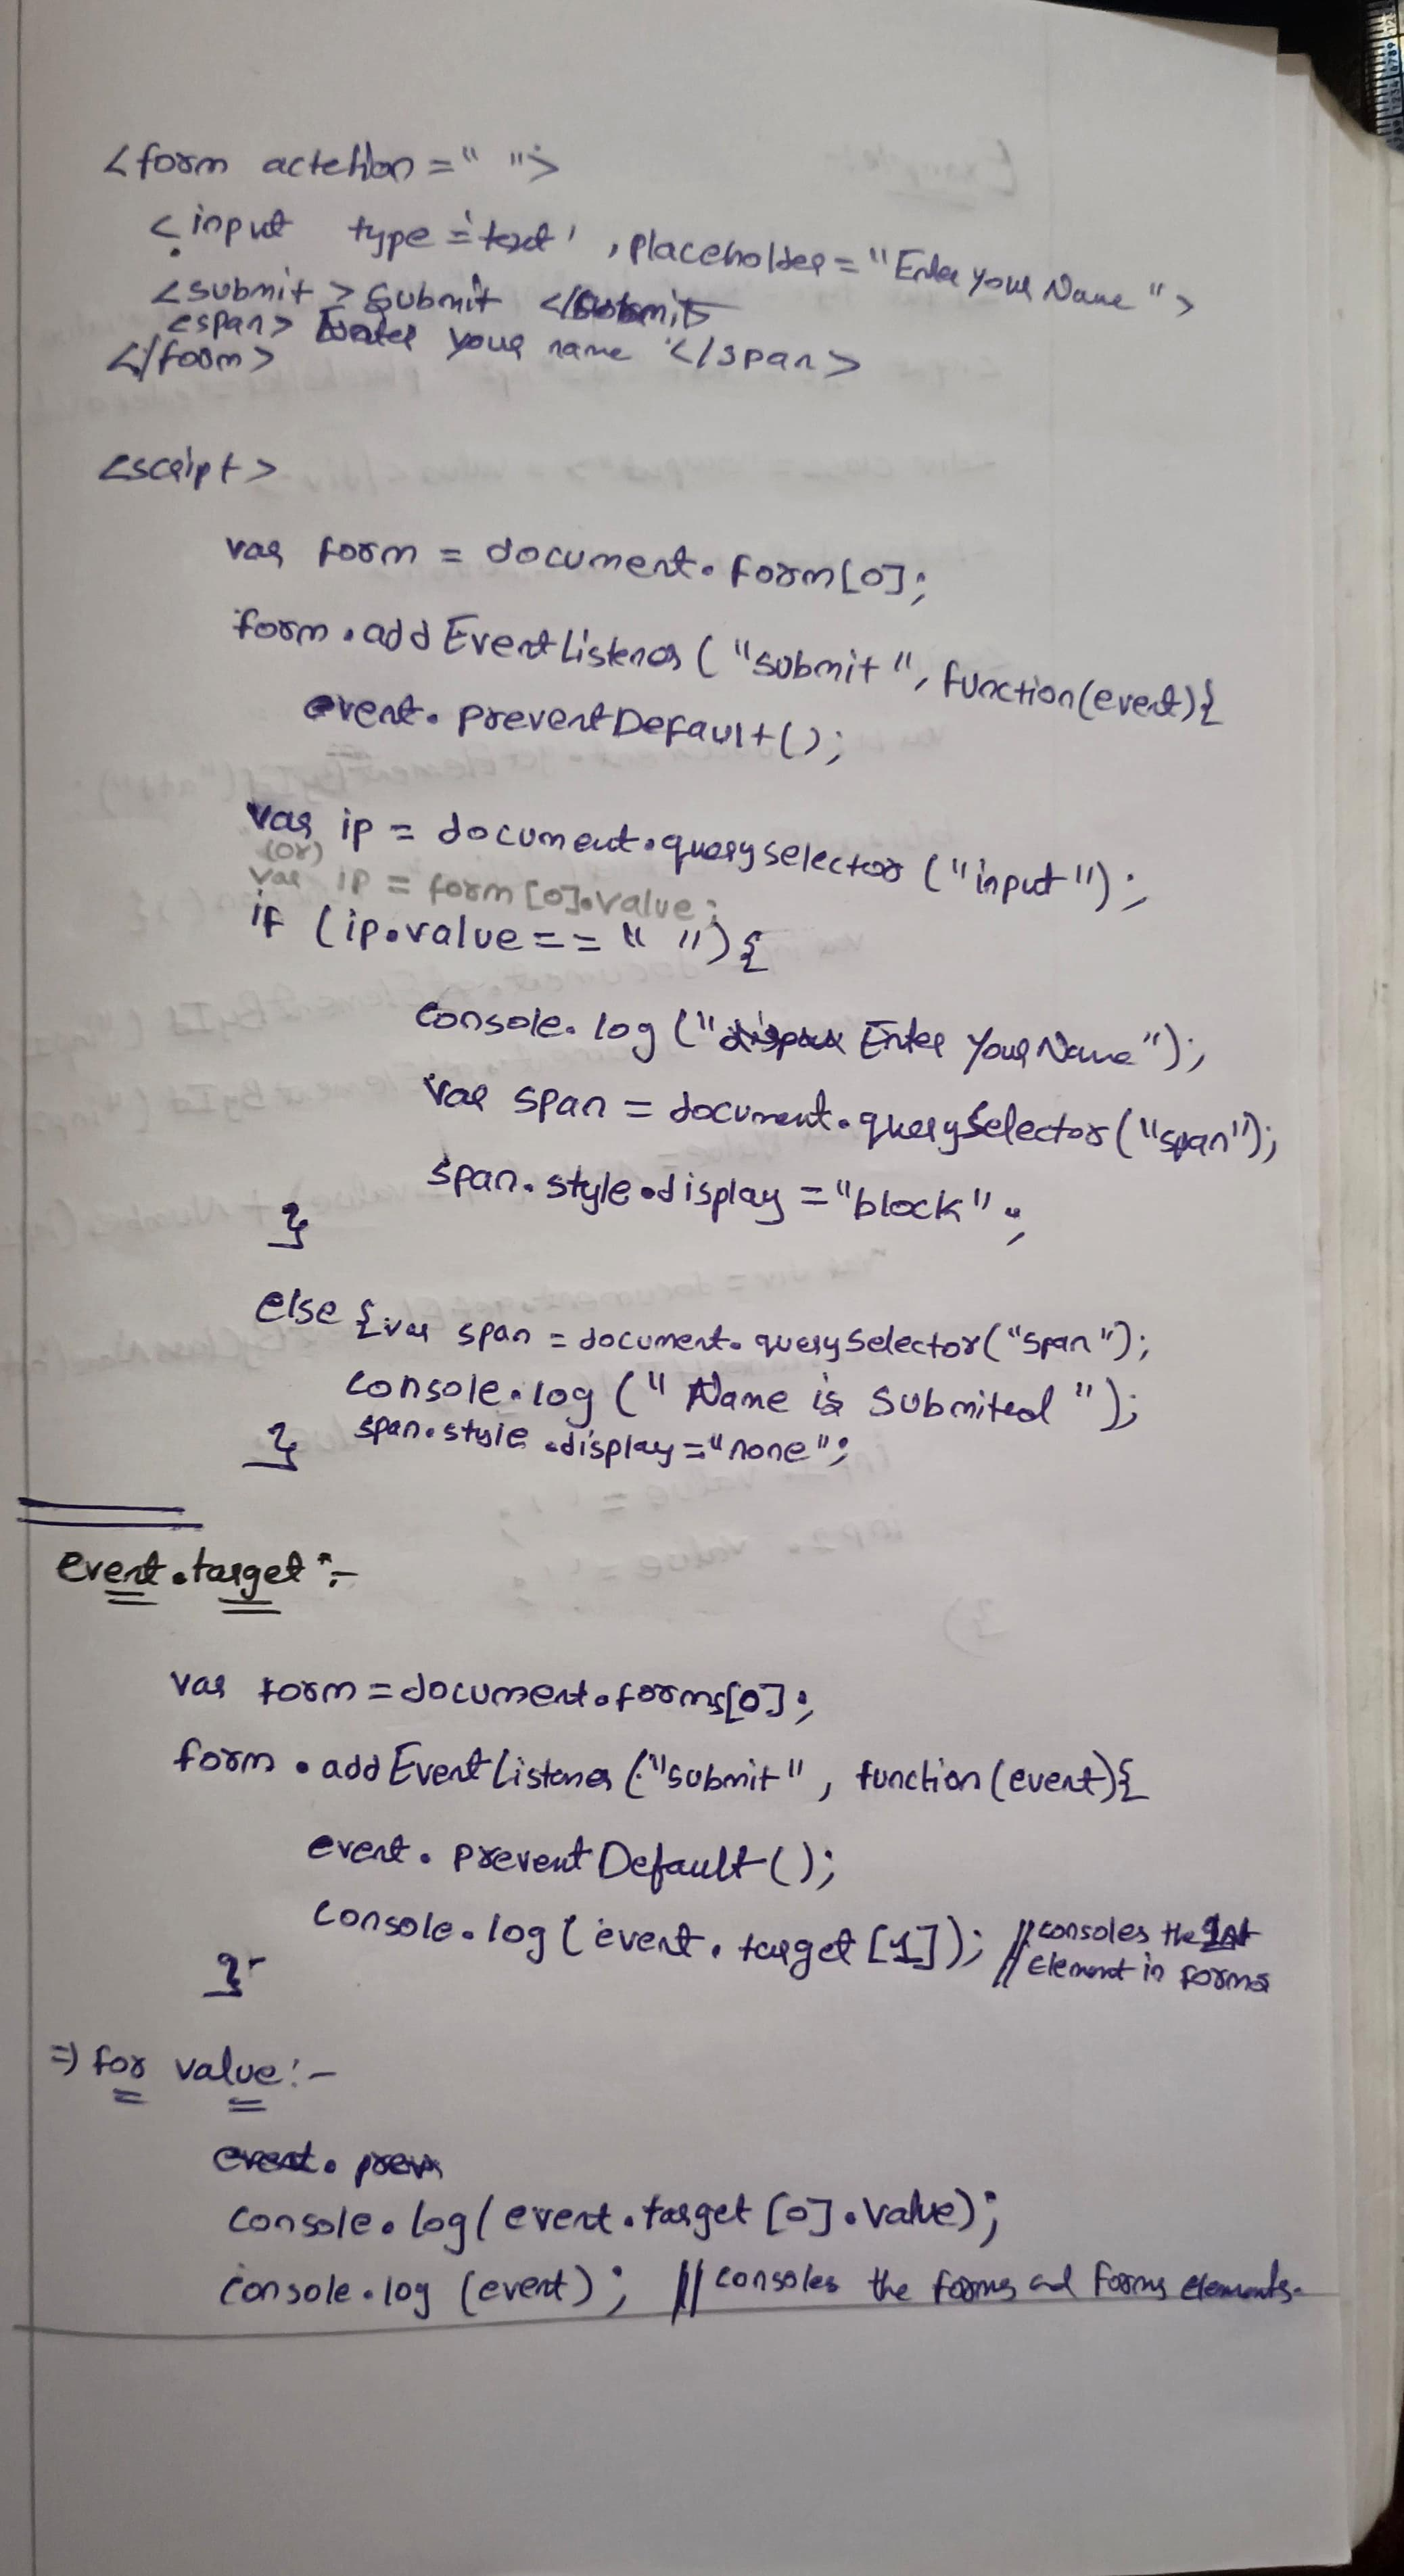 <form actetion = " ">
<input type = 'text' , placeholder = "Enter your Name ">
<submit > Submit </submit>
<span> Enter your name </span>
</form>
<script>
var form = document.form[0];
form.addEventListener ( "submit ", function(event){
event. preventDefault();
var ip = document.queryselector ("input");
(or)
var ip = form [0].value;
if (ip.value == " "){
console. log (" Enter your Name");
var span = document.querySelector("span");
span.style.display = "block" ;
}
else { var span = document. querySelector("span");
console.log (" Name is Submited ");
span.style .display = "none" ;
}
event.target :-
var form = document.forms[0];
form . addEventListener ("submit" , function(event){
event. preventDefault();
console.log ( event. target [1]); // consoles the 1st
Element in forms
}
=> for value :-
event. prev
console.log( event.target [0].value);
console.log (event) ; // consoles the forms and forms elements.